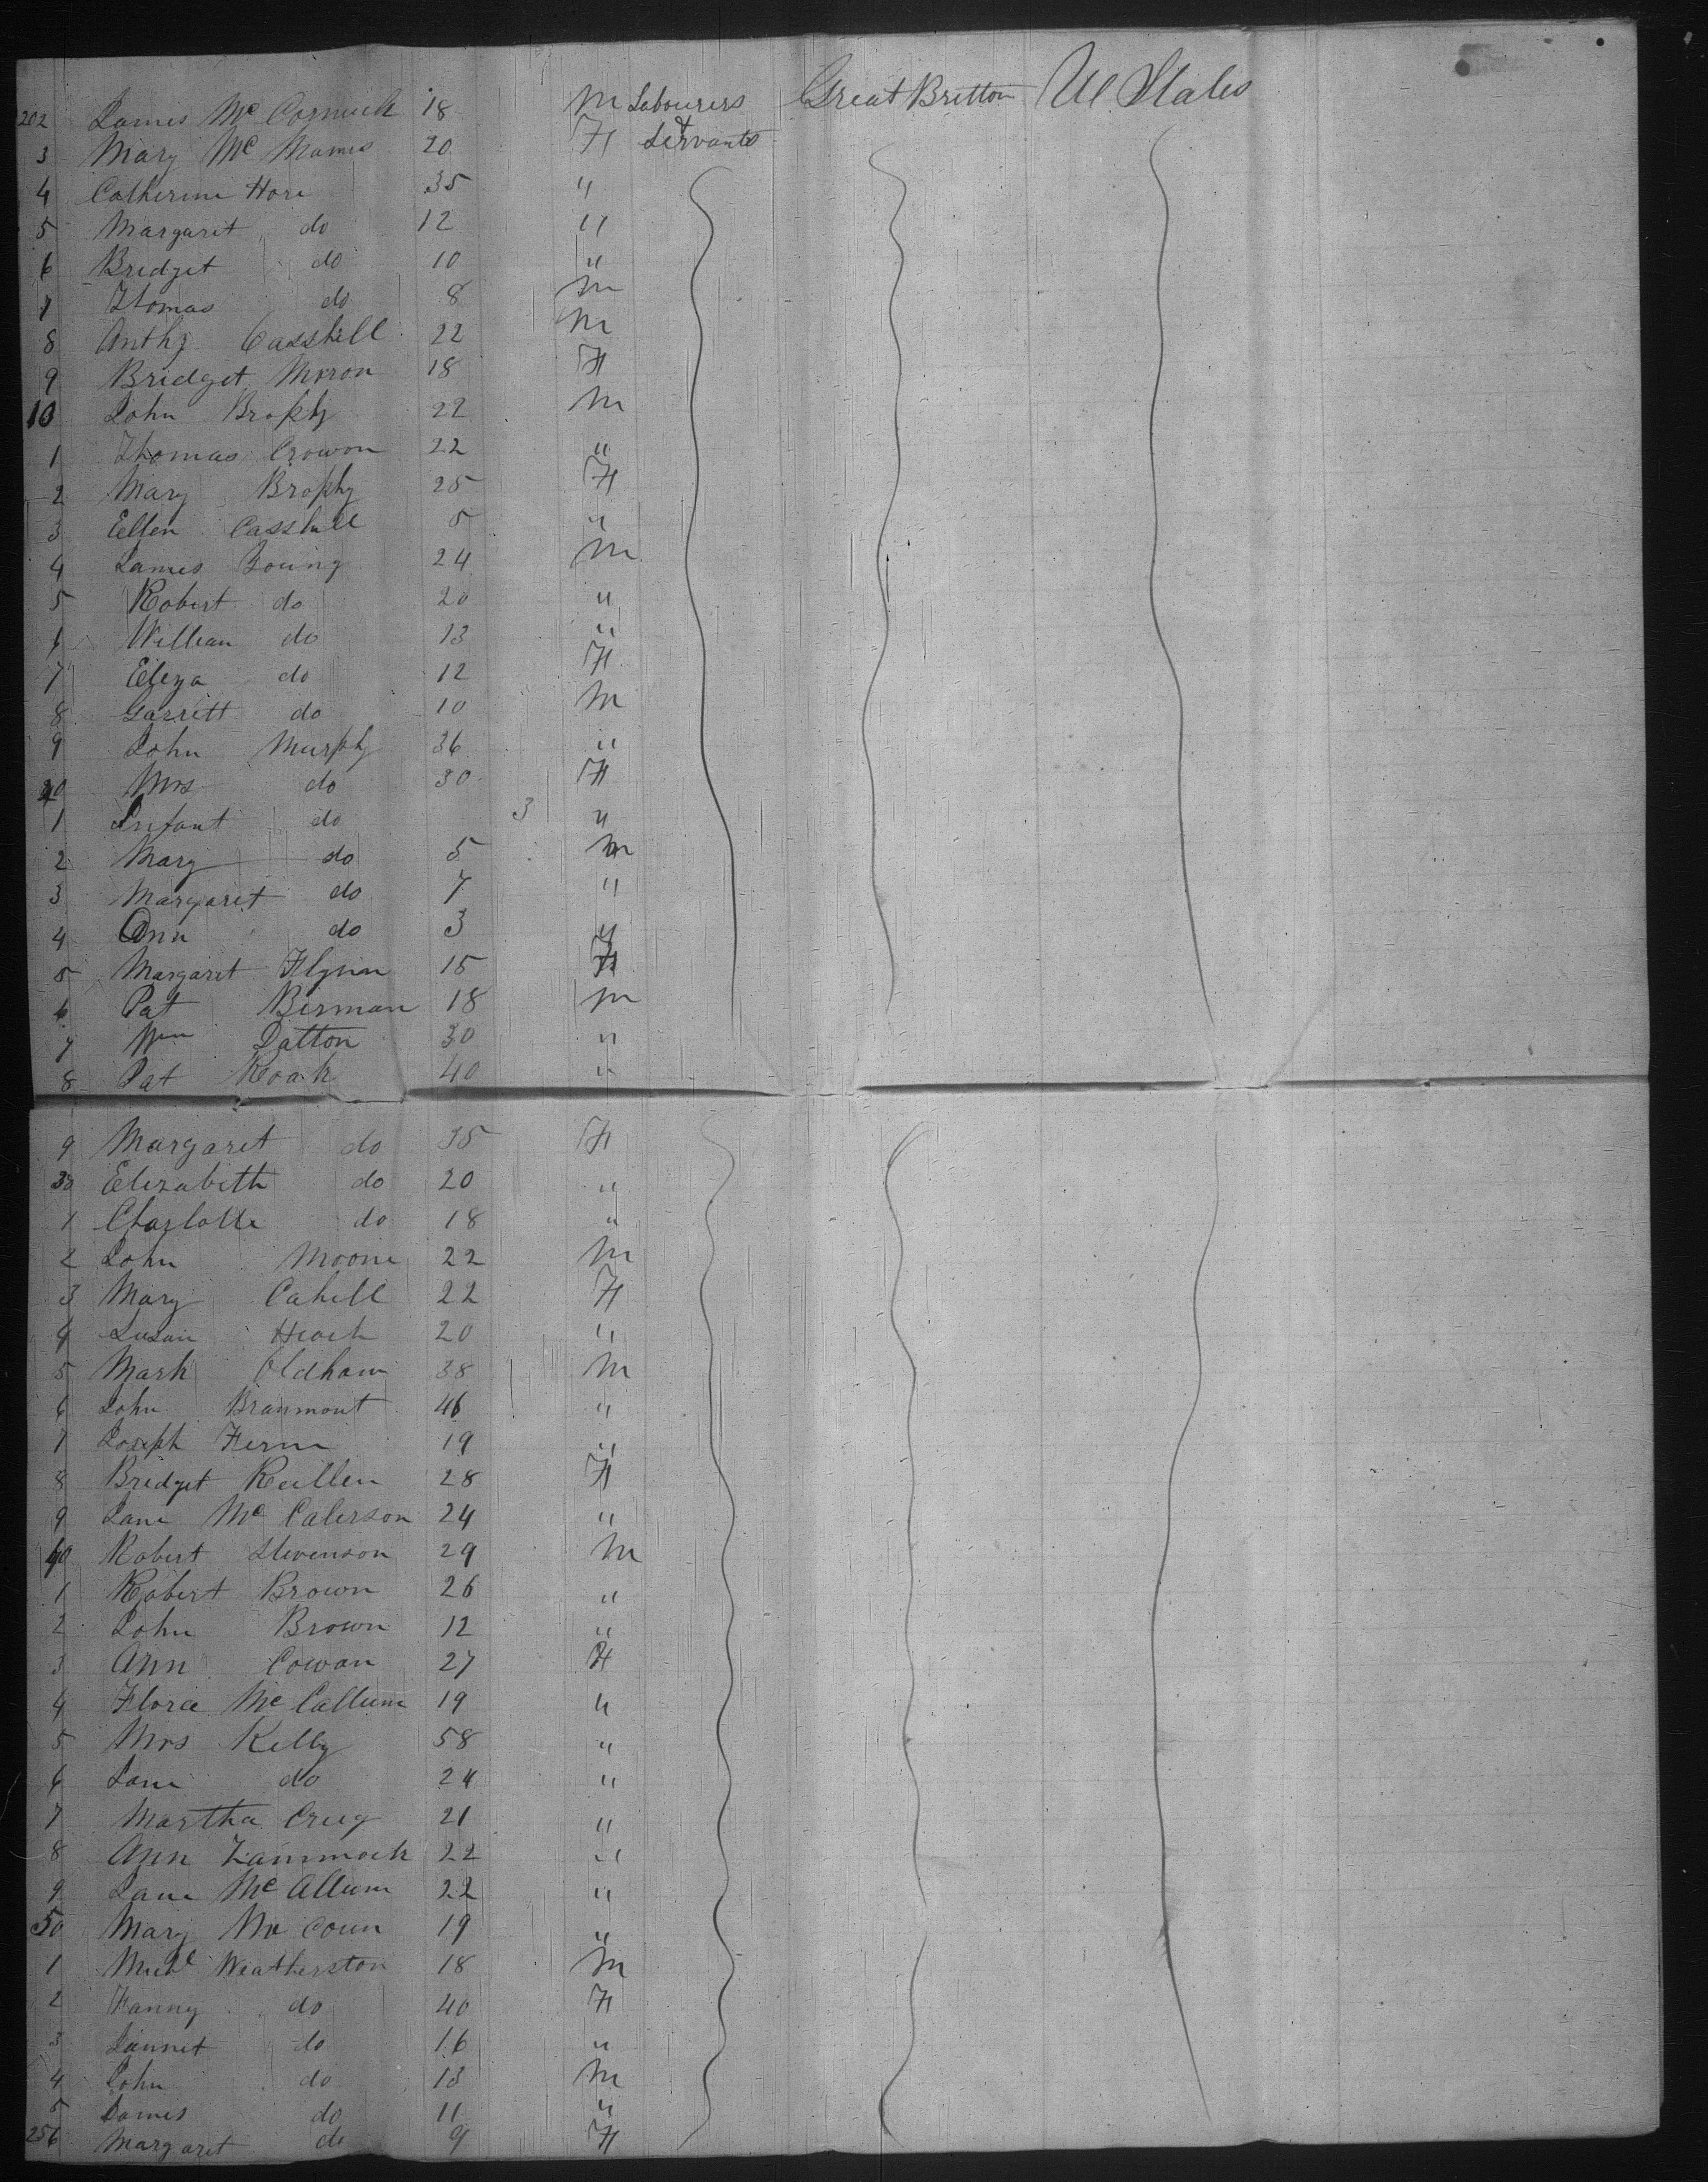 202 James Mc Cormick 18 M Labourers Great Britton U States
3 Mary Mc Manus 20 F & Servants
4 Catherine Hore 35 "
5 Margaret do 12 "
6 Bridget do 10 "
7 Thomas do 8 M
8 Anthy Casshill 22 M
9 Bridget Moron 18 F
10 John Brophy 22 M
1 Thomas Crowon 22 "
2 Mary Brophy 25 F
3 Ellen Casshill 5 "
4 James Young 24 M
5 Robert do 20 "
6 William do 13 "
7 Eliza do 12 F
8 Garritt do 10 M
9 John Murphy 36 "
20 Mrs do 30 F
1 Infant do 3 "
2 Mary do 5 M
3 Margaret do 7 "
4 Ann do 3 "
5 Margaret Flynn 15 F
6 Pat Birman 18 M
7 Wm Datton 30 "
8 Pat Roak 40 "
9 Margaret do 35 F
30 Elizabeth do 20 "
1 Charlotte do 18 "
2 John Moone 22 M
3 Mary Cahill 22 F
4 Susan 20 "
5 Mark Oldham 38 M
6 John Braumont 46 "
7 Joseph Fernn 19 "
8 Bridget Reillen 28 F
9 Jane Mc Calerson 24 "
40 Robert Stevenson 29 M
1 Robert Brown 26 "
2 John Brown 12 "
3 Ann Cowan 27 F
4 Flora Mc Callum 19 "
5 Mrs Kelly 58 "
6 Jane do 24 "
7 Martha Creig 21 "
8 Ann 22 "
9 Jane Mc Allum 22 "
50 Mary Mc Coun 19 "
1 Michl Weatherston 18 M
2 Fanny do 40 F
3 Jannet do 16 "
4 John do 13 M
5 James do 11 "
256 Margaret do 9 F